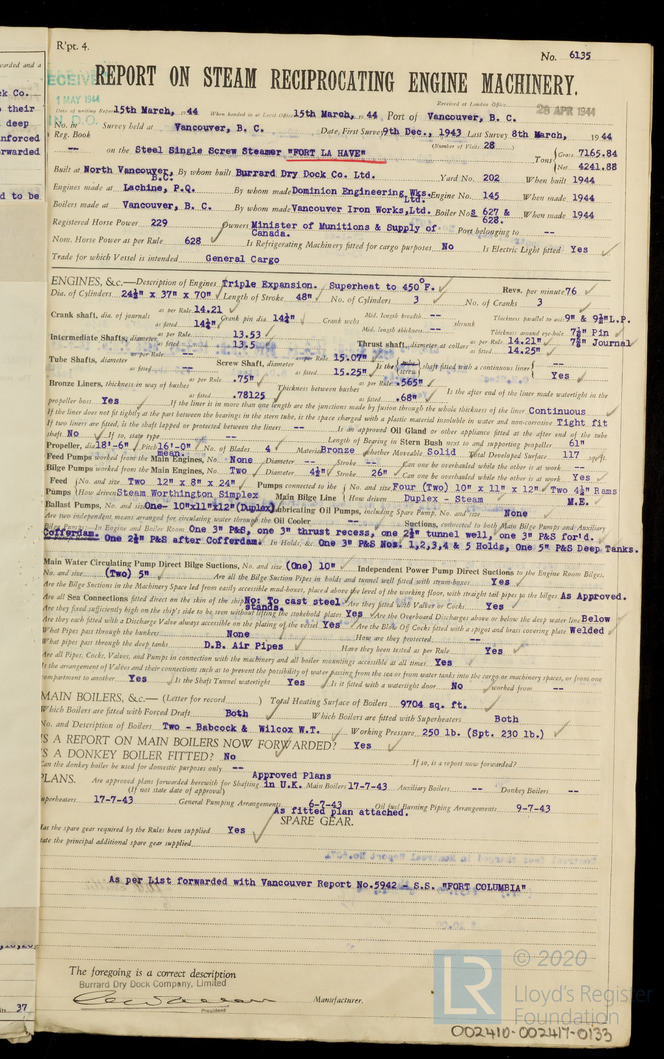 R'pt. 4.
No. 6135
REPORT ON STEAM RECIPROCATING ENGINE MACHINERY.
RECEIVE
1 MAY 1944
IN D.O.
Received at London Office
28 APR 1944
Date of writing Report 15th March, 19 44 When handed in at Local Office 15th March, 19 44 Port of Vancouver, B. C.
No. in Survey held at Vancouver, B. C. Date, First Survey 9th Dec., 1943 Last Survey 8th March, 19 44
Reg. Book (Number of Visits 28
-- on the Steel Single Screw Steamer "FORT LA HAVE" Tons { Gross 7165.84
Net 4241.88
Built at North Vancouver, B.C. By whom built Burrard Dry Dock Co. Ltd. Yard No. 202 When built 1944
Engines made at Lachine, P.Q. By whom made Dominion Engineering Wks. Ltd. Engine No. 145 When made 1944
Boilers made at Vancouver, B. C. By whom made Vancouver Iron Works, Ltd. Boiler No. S 627 & 628. When made 1944
Registered Horse Power 229 Owners Minister of Munitions & Supply of Canada. Port belonging to --
Nom. Horse Power as per Rule 628 Is Refrigerating Machinery fitted for cargo purposes No Is Electric Light fitted Yes
Trade for which Vessel is intended General Cargo
ENGINES, &c.—Description of Engines Triple Expansion. Superheat to 450°F. Revs. per minute 76
Dia. of Cylinders 24½" x 37" x 70" Length of Stroke 48" No. of Cylinders 3 No. of Cranks 3
Crank shaft, dia. of journals as per Rule 14.21 as fitted 14¼" Crank pin dia. 14¼" Crank webs Mid. length breadth -- Mid. length thickness -- shrunk Thickness parallel to axis 9" & 9½" L.P. Thickness around eye-hole 7⅛" Pin 7⅛" Journal
Intermediate Shafts, diameter as per Rule 13.53 as fitted 13.5" Thrust shaft, diameter at collars as per Rule 14.21" as fitted 14.25"
Tube Shafts, diameter as per Rule -- as fitted -- Screw Shaft, diameter as per Rule 15.07" as fitted 15.25" Is the { tube screw } shaft fitted with a continuous liner { -- Yes
Bronze Liners, thickness in way of bushes as per Rule .75" as fitted .78125 Thickness between bushes as per Rule .565" as fitted .68" Is the after end of the liner made watertight in the
propeller boss Yes If the liner is in more than one length are the junctions made by fusion through the whole thickness of the liner Continuous
If the liner does not fit tightly at the part between the bearings in the stern tube, is the space charged with a plastic material insoluble in water and non-corrosive Tight fit
If two liners are fitted, is the shaft lapped or protected between the liners -- Is an approved Oil Gland or other appliance fitted at the after end of the tube
shaft No If so, state type -- Length of Bearing in Stern Bush next to and supporting propeller 61"
Propeller, dia. 18'-6" Pitch 16'-0" mean. No. of Blades 4 Material Bronze whether Moveable Solid Total Developed Surface 117 sq. ft.
Feed Pumps worked from the Main Engines, No. None Diameter -- Stroke -- Can one be overhauled while the other is at work --
Bilge Pumps worked from the Main Engines, No. Two Diameter 4¼" Stroke 26" Can one be overhauled while the other is at work Yes
Feed Pumps { No. and size Two 12" x 8" x 24" How driven Steam Worthington Simplex Pumps connected to the Main Bilge Line { No. and size Four (Two) 10" x 11" x 12" Two 4¼" Rams How driven Duplex - Steam M.E.
Ballast Pumps, No. and size One- 10"x11"x12" (Duplex) Lubricating Oil Pumps, including Spare Pump, No. and size None
Are two independent means arranged for circulating water through the Oil Cooler -- Suctions, connected to both Main Bilge Pumps and Auxiliary
Bilge Pumps:—In Engine and Boiler Room One 3" P&S, one 3" thrust recess, one 2½" tunnel well, one 3" P&S for'd.
Cofferdam. One 2½" P&S after Cofferdam. In Holds, &c. One 3" P&S Nos. 1,2,3,4 & 5 Holds, One 5" P&S Deep Tanks.
Main Water Circulating Pump Direct Bilge Suctions, No. and size (One) 10" Independent Power Pump Direct Suctions to the Engine Room Bilges,
No. and size (Two) 5" Are all the Bilge Suction Pipes in holds and tunnel well fitted with strum-boxes Yes
Are the Bilge Suctions in the Machinery Space led from easily accessible mud-boxes, placed above the level of the working floor, with straight tail pipes to the bilges As Approved.
Are all Sea Connections fitted direct on the skin of the ship No: To cast steel stands. Are they fitted with Valves or Cocks Yes
Are they fixed sufficiently high on the ship's side to be seen without lifting the stokehold plates Yes Are the Overboard Discharges above or below the deep water line Below
Are they each fitted with a Discharge Valve always accessible on the plating of the vessel Yes Are the Blow Off Cocks fitted with a spigot and brass covering plate Welded
What Pipes pass through the bunkers None How are they protected --
What pipes pass through the deep tanks D.B. Air Pipes Have they been tested as per Rule Yes
Are all Pipes, Cocks, Valves, and Pumps in connection with the machinery and all boiler mountings accessible at all times Yes
Is the arrangement of Valves and their connections such as to prevent the possibility of water passing from the sea or from water tanks into the cargo or machinery spaces, or from one
compartment to another Yes Is the Shaft Tunnel watertight Yes Is it fitted with a watertight door No worked from --
MAIN BOILERS, &c.— (Letter for record ) Total Heating Surface of Boilers 9704 sq. ft.
Which Boilers are fitted with Forced Draft Both Which Boilers are fitted with Superheaters Both
No. and Description of Boilers Two - Babcock & Wilcox W.T. Working Pressure 250 lb. (Spt. 230 lb.)
IS A REPORT ON MAIN BOILERS NOW FORWARDED? Yes
IS A DONKEY BOILER FITTED? No If so, is a report now forwarded?
Can the donkey boiler be used for domestic purposes only --
PLANS. Are approved plans forwarded herewith for Shafting Approved Plans in U.K. Main Boilers 17-7-43 Auxiliary Boilers -- Donkey Boilers --
(If not state date of approval)
Superheaters 17-7-43 General Pumping Arrangements 6-7-43 Oil fuel Burning Piping Arrangements 9-7-43
As fitted plan attached.
SPARE GEAR.
Has the spare gear required by the Rules been supplied Yes
State the principal additional spare gear supplied
As per List forwarded with Vancouver Report No.5942 - S.S. "FORT COLUMBIA"
The foregoing is a correct description
Burrard Dry Dock Company, Limited
Manufacturer.
President
© 2020
LR
Lloyd's Register
Foundation
002410-002417-0133